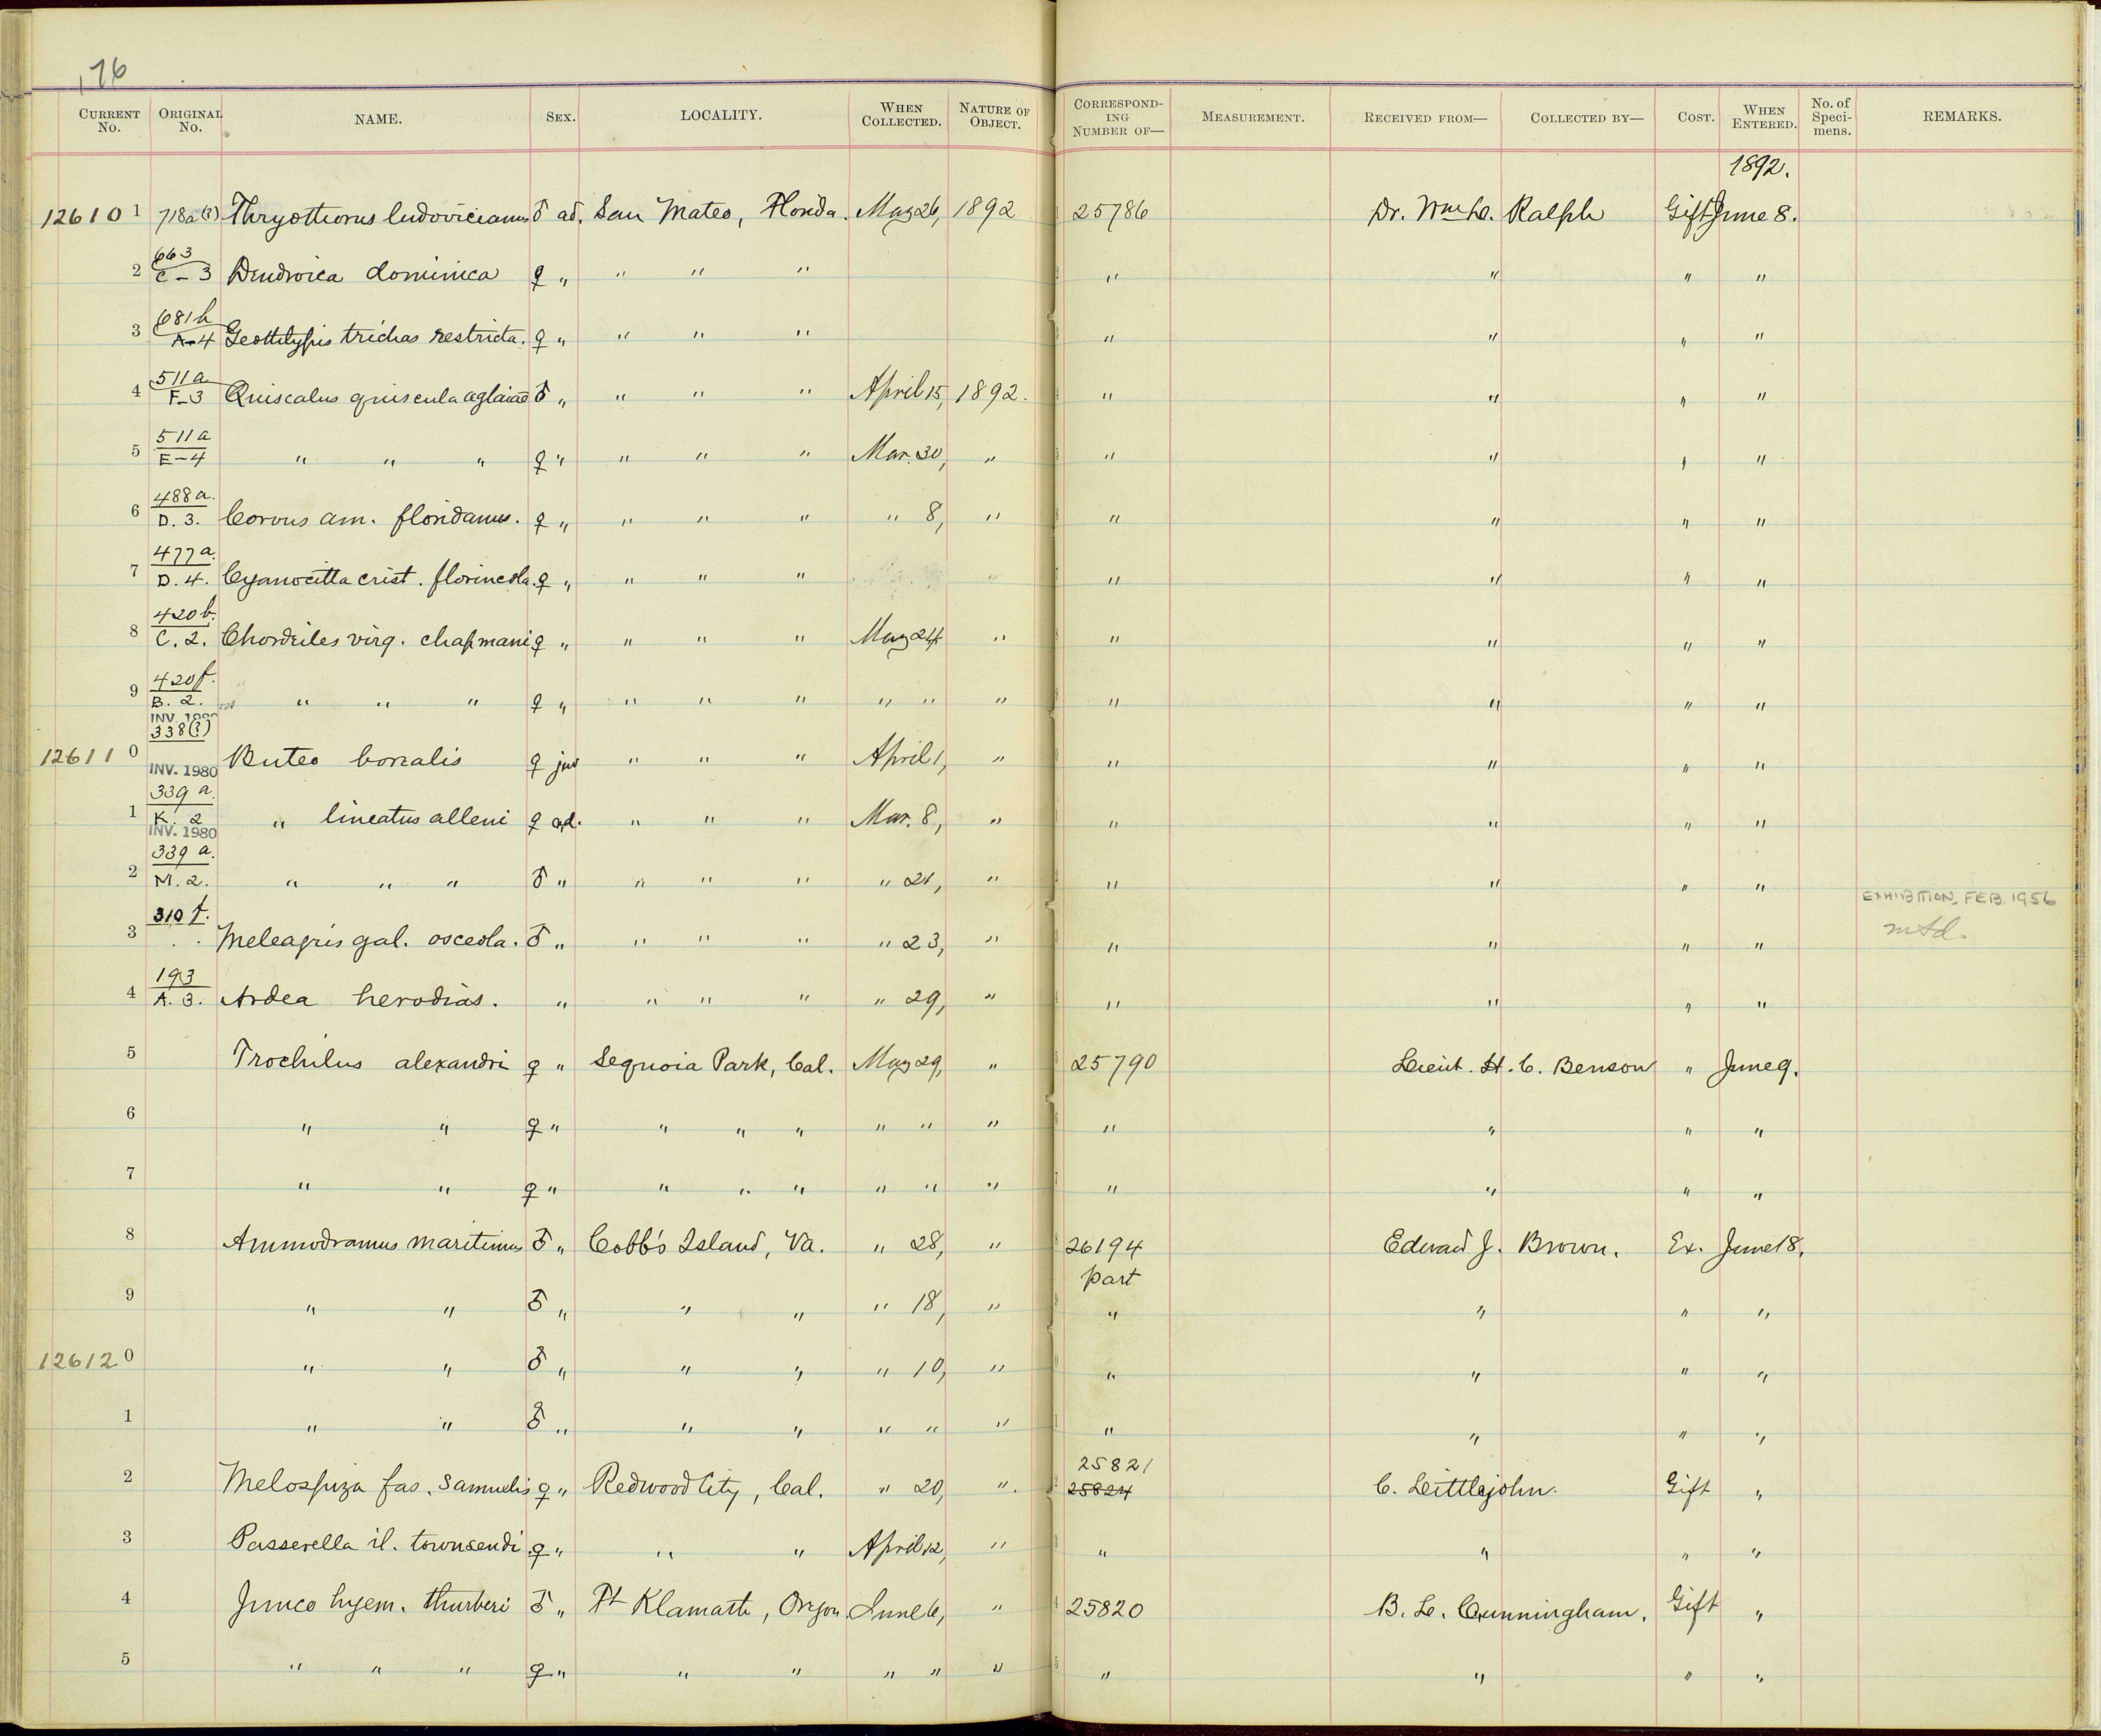 176
CURRENT No. ORIGINAL No. NAME. SEX. LOCALITY. WHEN COLLECTED. NATURE OF OBJECT. CORRESPONDING NUMBER OF— MEASUREMENT. RECEIVED FROM— COLLECTED BY— COST. WHEN ENTERED. No. of Specimens. REMARKS.
1892.
12610 1 718a(?) Thryothorus ludovicianus ♂ ad. San Mateo, Florida. May 26, 1892 25786 Dr. Wm L. Ralph Gift June 8.
2 663 C-3 Dendroica dominica ♀ " " " " " " " "
3 681b A-4 Geothlypis trichas restricta. ♀ " " " " " " " "
4 511a F-3 Quiscalus quiscula aglaiae ♂ " " " " April 15, 1892. " " " "
5 511a E-4 " " " ♀ " " " " Mar. 30, " " " " "
6 488a. D. 3. Corvus am. floridanus. ♀ " " " " " 8, " " " " "
7 477a. D. 4. Cyanocitta crist. florincola. ♀ " " " " " " " " "
8 420b. C. 2. Chordeiles virg. chapmani ♀ " " " " May 24 " " " " "
9 420f. B. 2. " " " ♀ " " " " " " " " " " "
INV. 1980
338(?)
12611 0 Buteo borealis ♀ juv " " " April 1, " " " " "
INV. 1980
1 339 a. K. 2 " lineatus alleni ♀ ad. " " " Mar. 8, " " " " "
INV. 1980
2 339 a. M. 2. " " " ♂ " " " " " 21, " " " " "
EXHIBITION, FEB. 1956
3 310 f. Meleagris gal. osceola. ♂ " " " " " 23, " " " " " mtd.
4 193 A. 3. Ardea herodias. " " " " " 29, " " " " "
5 Trochilus alexandri ♀ " Sequoia Park, Cal. May 29, " 25790 Lieut. H. C. Benson " June 9.
6 " " ♀ " " " " " " " " " " "
7 " " ♀ " " " " " " " " " " "
8 Ammodramus maritimus ♂ " Cobb's Island, Va. " 28, " 26194 part Edward J. Brown. Ex. June 18,
9 " " ♂ " " " " 18, " " " " "
12612 0 " " ♂ " " " " 10, " " " " "
1 " " " " " " " " " " " "
25821
2 Melospiza fas. samuelis ♀ " Redwood City, Cal. " 20, ". 25824 C. Littlejohn. Gift "
3 Passerella il. townsendi. ♀ " " " April 12, " " " " "
4 Junco hyem. thurberi ♂ " Ft Klamath, Oregon June 6, " 25820 B. L. Cunningham. Gift "
5 " " " ♀ " " " " " " " " " "